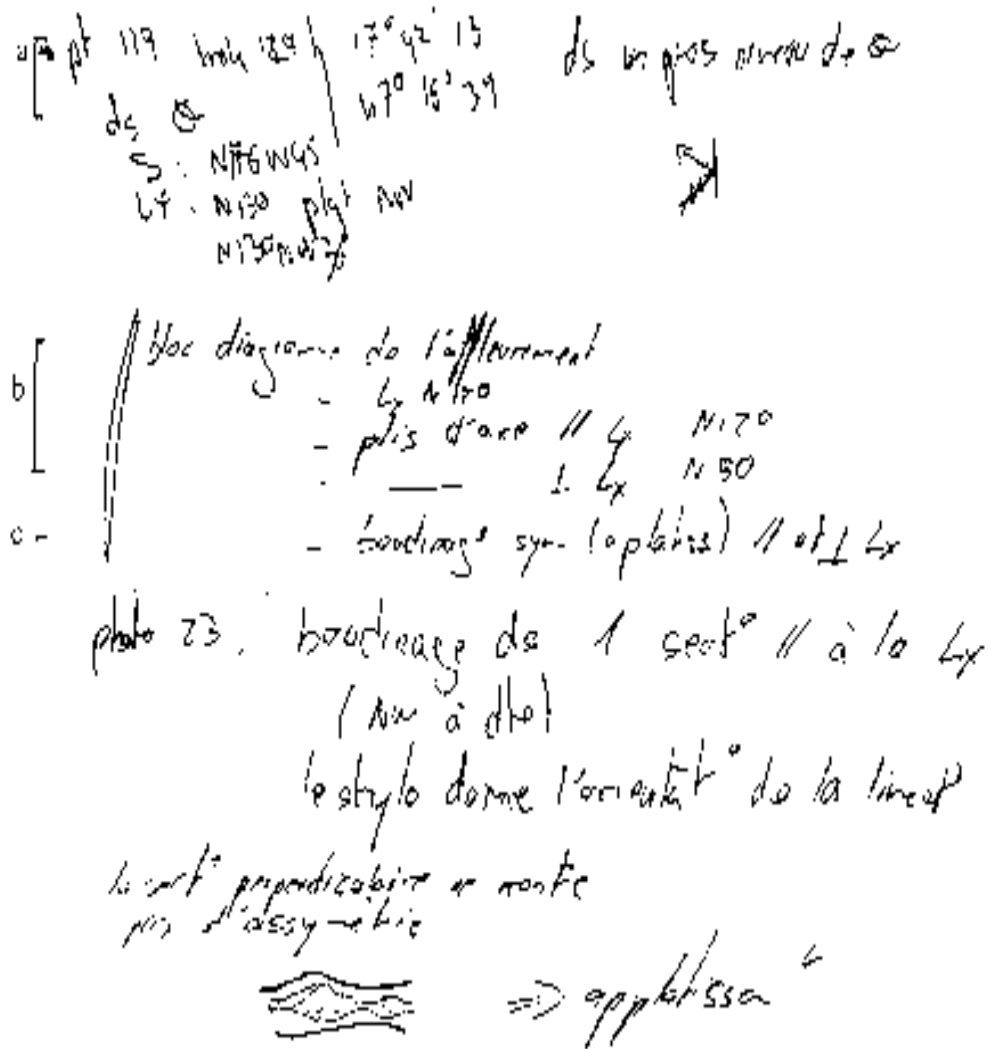 a pt 119 17° 42' 13 ds un gros niveau de Q
67° 16' 39
ds Q
S :
Lx : N130 plgt NW
b bloc diagramme de l'affleurement
- Lx N170
- plis d'axe // Lx N170
- —— ⊥ Lx N 90
c - - boudinage sym (aplatiss) // et ⊥ Lx
photo 23. boudinage ds 1 sect° // à la Lx
(NW à dte)
le stylo donne l'orientat° de la lineat°
la sect° perpendiculaire ne montre
pas d'assymétrie
=> applatissa^t